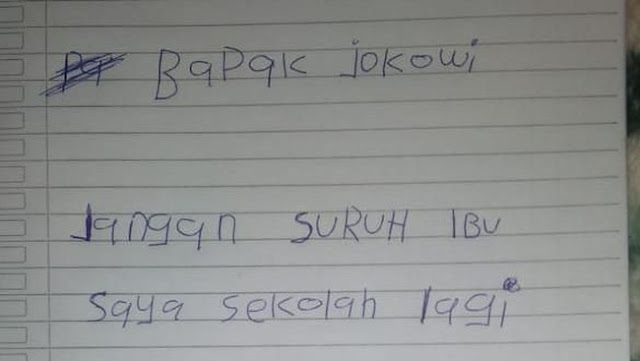 Bapak jokowi
Jangan SURUH IBU
Saya sekolah lagi